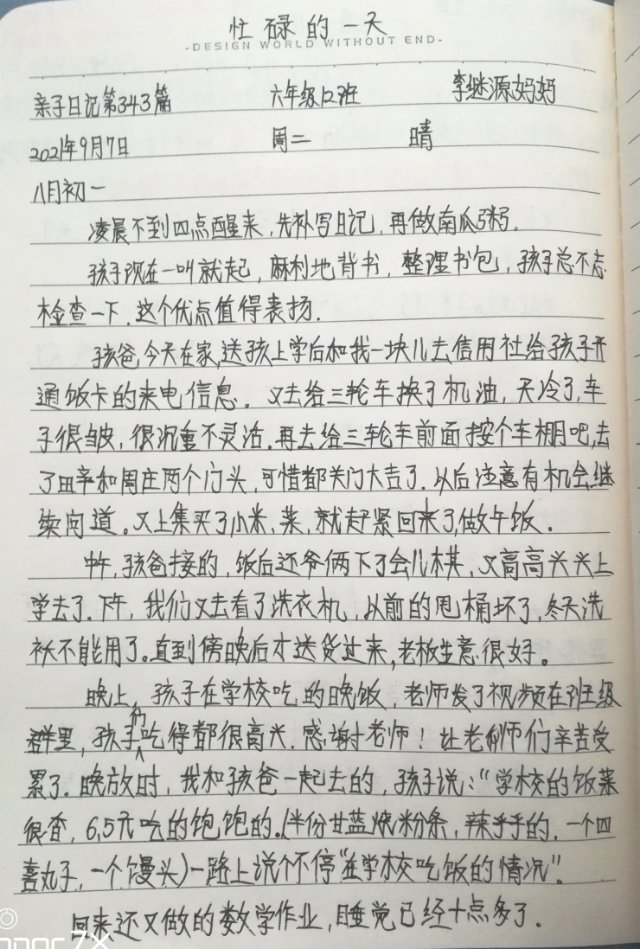 忙碌的一天
-DESIGN WORLD WITHOUT END-
亲子日记第343篇 六年级12班 李继源妈妈
2021年9月7日 周二 晴
八月初一
凌晨不到四点醒来,先补写日记,再做南瓜粥.
孩子现在一叫就起,麻利地背书,整理书包,孩子总不忘
检查一下.这个优点值得表扬.
孩爸今天在家,送孩上学后和我一块儿去信用社给孩子开
通饭卡的来电信息.又去给三轮车换了机油,天冷了,车
子很皱,很沉重不灵活.再去给三轮车前面按个车棚吧,去
了田辛和周庄两个门头,可惜都关门大吉了.以后注意有机会继
续问道。又上集买了小米、菜,就赶紧回来了,做午饭。
中午,孩爸接的,饭后还爷俩下了会儿棋,又高高兴兴上
学去了.下午,我们又去看了洗衣机,以前的甩桶坏了,冬天洗
袄不能用了。直到傍晚后才送货过来,老板生意很好。
晚上,孩子在学校吃的晚饭,老师发了视频在班级
群里,孩子们吃得都很高兴.感谢老师!让老师们辛苦受
累了.晚放时,我和孩爸一起去的,孩子说:"学校的饭菜
很香,6.5元吃的饱饱的.(半份甘蓝炖粉条,辣乎乎的,一个四
喜丸子,一个馒头)一路上说个不停"在学校吃饭的情况".
回来还又做的数学作业,睡觉已经十点多了.